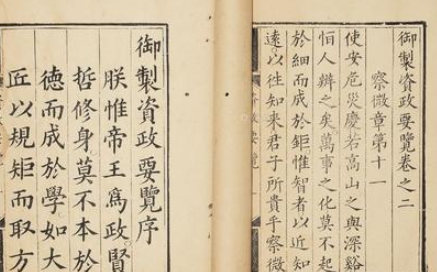 御製資政要覽卷之二
察微章第十一
使安危災慶若高山之與深谿
恒人辨之矣萬事之化莫不起
於細而成於鉅惟智者以近知
遠以徃知来君子所貴乎察微
御製資政要覽序
朕惟帝王爲政賢
哲修身莫不本於
德而成於學如大
匠以規矩而取方